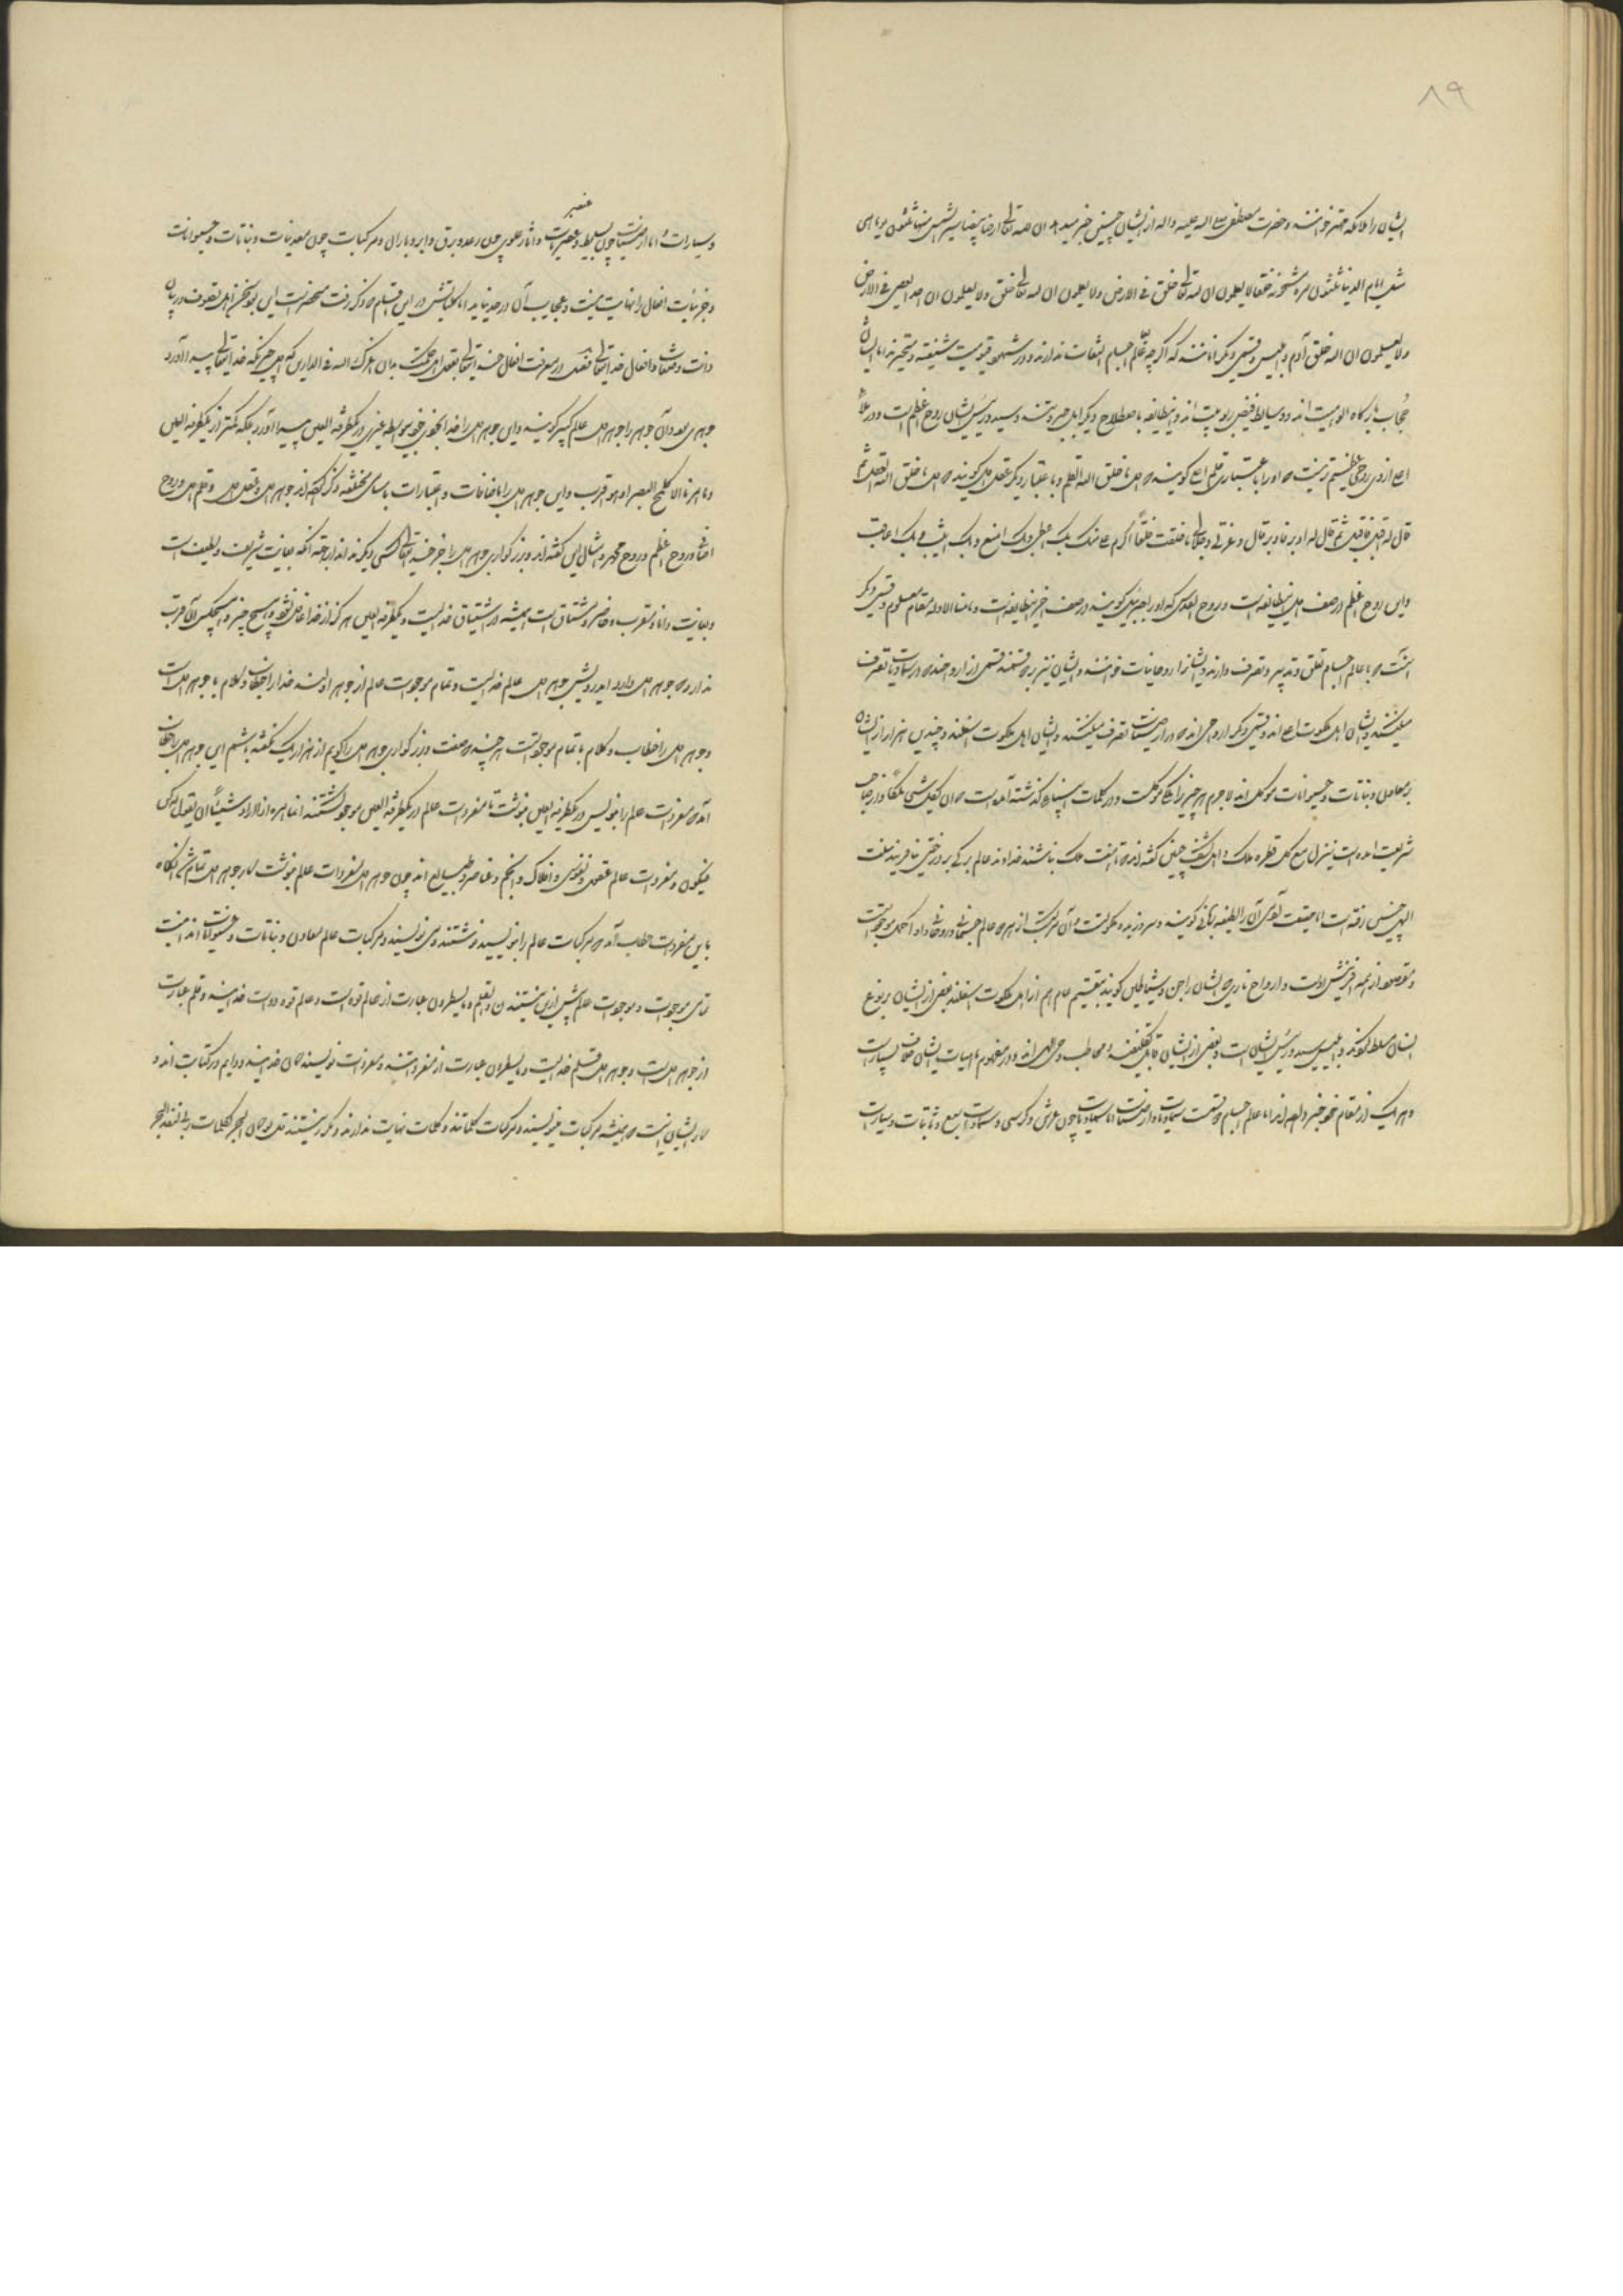 ۸۹
ایشان را ملائکه مهیمه خوانند و حضرت مصطفی صلی الله علیه واله از ایشان چنین خبر میدهد ان لله تعالی ارضا بیضاء مسیر الشمس فیها ثلثون یوما هی
مثل ایام الدنیا ثلثون مرة مشحونة خلقا لا یعلمون ان الله تعالی خلق فی الارض ولا یعلمون ان الله تعالی خلق ولا یعلمون ان الله یعصی فی الارض
ولا یعلمون ان الله خلق آدم و ابلیس و قسمی دیگر آنانند که اگر چه بعالم اجسام التفات ندارند و در شهود قیومیت شیفته و متحیرند اما ایشان
حجاب بارگاه الوهیت اند و وسایط فیض ربوبیت اند و این طایفه باصطلاح دیگر اهل جبروتند و سید و رئیس ایشان روح اعظم است و در ملاء
اعلی ازو روحی عظیم تر نیست و او را باعتباری قلم اعلی گویند که اول ما خلق الله القلم و باعتبار دیگر عقل اول گویند که اول ما خلق الله العقل ثم
قال له اقبل فاقبل ثم قال له ادبر فادبر قال و عزتی و جلالی ما خلقت خلقاً اکرم علی منک بک اعطی و بک امنع و بک اثیب و بک اعاقب
و این روح اعظم در صف اول این طایفه است و روح القدس که او را جبرئیل گویند در صف اخیر این طایفه است و ما منا الا وله مقام معلوم و قسمی دیگر
آنست که با عالم اجسام تعلق و تدبیر و تصرف دارند و ایشانرا روحانیات خوانند و ایشان نیز بر دو قسمند قسمی از ارواحند که در سماویات تصرف
میکنند و ایشان اهل ملکوت اعلی اند و قسمی دیگر ارواحی اند که در ارضیات تصرف میکنند و ایشان اهل ملکوت اسفلند و چندین هزار از ایشان
بر معادن و نباتات و حیوانات موکل اند لاجرم بهر چیز ملکی موکلست و در کلمات انبیای گذشته آمده است که ان لکل شئ ملکاً و از صاحب
شریعت آمده است ینزل مع کل قطرة ملک و اهل کشف چنین گفته اند که تا هفت ملک نباشند خداوند عالم برگی بر درختی نیافریند سنت
الهی چنین رفته است اما حقیقت آدمی آن را لطیفه ربانی گویند
و مقصود از همه آفرینش اوست و ارواح ناریه ایشان را جن و شیاطین گویند بتقسیم عام هم از اهل ملکوت اسفلند بعضی از ایشان بر نوع
انسان مسلط گونه و ابلیس سید و رئیس ایشان است و بعضی از ایشان قابل تکلیفند و مخاطب وحی الهی اند و در مفهوم ماهیات ایشان خلاف بسیار است
و هر یک از مقام خود خبر داده اند اما عالم اجسام دو قسمت سماویات و ارضیات اما سماویات چون عرش و کرسی و سماوات سبع و ثابتات و سیارات
و سیارات اما ارضیات چون بسیط عنصریات و آثار علوی چون رعد و برق و ابر و باران و مرکبات چون معدنیات و نباتات و حیوانات
عنصر
و جزئیات افعال را نهایت نیست و عجایب آن در حد نیاید اما کلیاتش در این اقسام که ذکر رفت منحصر است این بود سخن اهل تصوف در بیان
ذات و صفات و افعال خدایتعالی فصل در معرفت افعال خدایتعالی بقول اهل حکمت بدان اعزک الله فی الدارین که اول چیزیکه خدایتعالی بیافرید
جوهری بود و آن جوهر را جوهر اول عالم کبیر گویند و این جوهر اول را خدا بخودی خود بی واسطه غیری در یک طرفة العین پیدا آورد بلکه کمتر از یک طرفة العین
و ما امرنا الا کلمح البصر او هو اقرب و این جوهر اول را باضافات و اعتبارات باسامی مختلفه ذکر کرده اند جوهر اول و عقل اول و قلم اول و روح
اضافی و روح اعظم و روح محمد و امثال این گفته اند و بزرگواری جوهر اول را جز خدایتعالی کسی دیگر نداند از جهت آنکه بغایت شریف و لطیف است
و بغایت دانا و مقرب و حاضر و مشتاق است همیشه در اشتیاق خدا است و یک طرفة العین هرگز از خدا غافل نشود و هیچ چیز و هیچکس آن قرب
ندارد که جوهر اول دارد ای درویش جوهر اول عالم خدا است و تمام موجودات عالم از جوهر اولند خدا را خطاب و کلام با جوهر اول است
و جوهر اول را خطاب و کلام با تمام موجوداتست هر چند که صفت و بزرگواری جوهر اول را گویم از هزار یک نگفته باشم این جوهر اول را خطاب
آمد که مفردات عالم را بنویس در یک طرفة العین بنوشت تا مفردات عالم در یک طرفة العین موجود گشتند انما امره اذا اراد شیئاً ان یقول له کن
فیکون و مفردات عالم عقول و نفوس و افلاک و انجم و عناصر و طبایع اند چون جوهر اول مفردات عالم بنوشت کار جوهر اول تمام شد آنگاه
باین مفردات خطاب آمد که مرکبات عالم را بنویسید نوشتند و می نویسند و مرکبات عالم معادن و نباتات و حیوانات اند اینست
تمامی موجودات و موجودات عالم بیش ازین نیستند ن والقلم وما یسطرون عبارت از عالم قوه است و عالم قوه دوات خداست و قلم عبارت
از جوهر اول است و جوهر اول قلم خدا است وما یسطرون عبارت از مفرداتند و مفردات نویسندگان خدایند و دایم در کتابت اند و
کار ایشان اینست که همیشه مرکبات مینویسند و مرکبات کلماتند و کلمات نهایت ندارند و مکرر نیستند قل لو کان البحر لکلمات ربی لنفد البحر